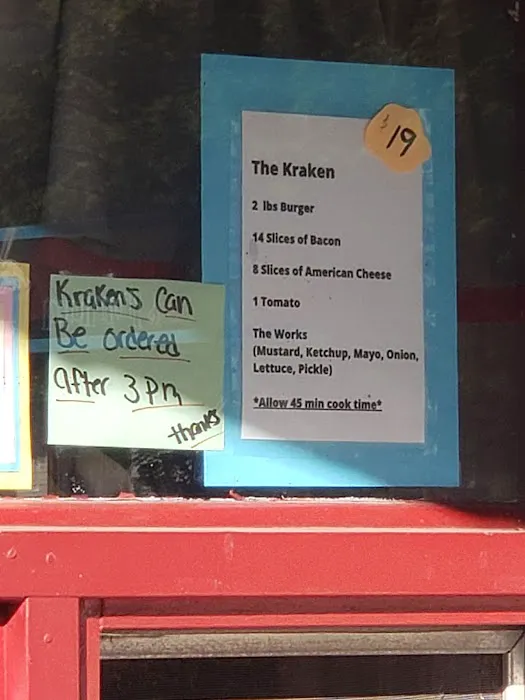 $19
The Kraken
2 lbs Burger
14 Slices of Bacon
8 Slices of American Cheese
1 Tomato
The Works
(Mustard, Ketchup, Mayo, Onion,
Lettuce, Pickle)
*Allow 45 min cook time*
Krakens Can
Be ordered
after 3 Pm
thanks